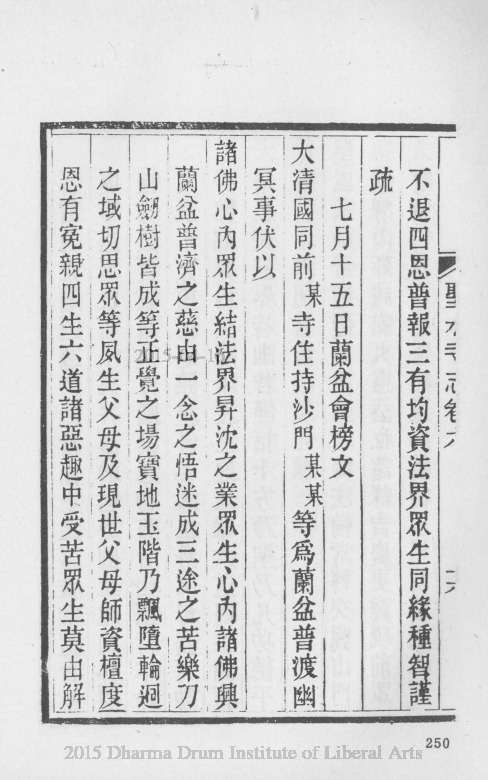 不退四恩普報三有均資法界眾生同緣種智謹
疏
七月十五日蘭盆會榜文
大清國同前某寺住持沙門某某等為蘭盆普渡幽
冥事伏以
諸佛心內眾生結法界昇沈之業眾生心內諸佛興
蘭盆普濟之慈由一念之悟迷成三途之苦樂刀
山劒樹皆成等正覺之場寶地玉階乃飄墮輪迴
之域切思眾等夙生父母及現世父母師資檀度
恩有寃親四生六道諸惡趣中受苦眾生莫由解
聖水寺志卷六
250
2015 Dharma Drum Institute of Liberal Arts